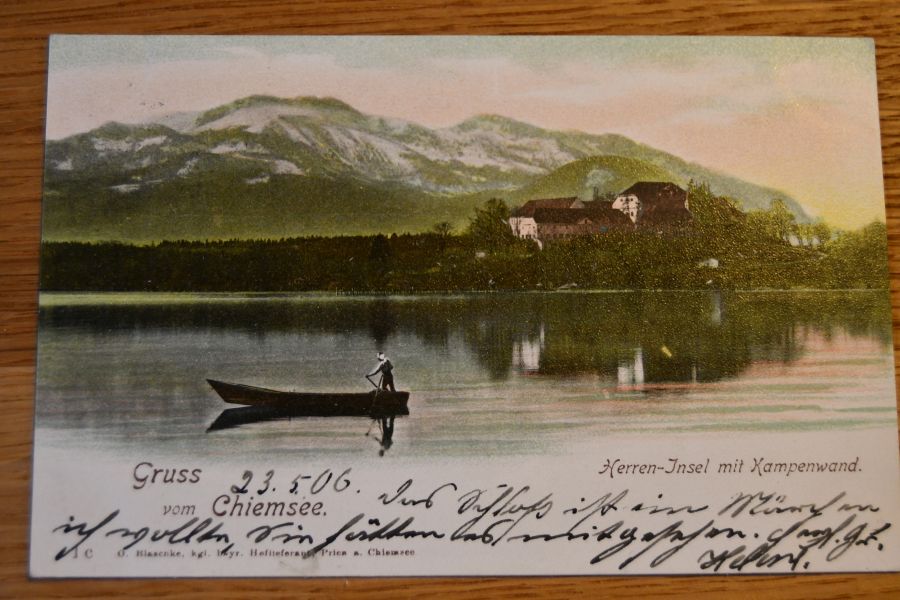 Gruss
vom Chiemsee.
Herren-Insel mit Kampenwand.
23.5.06. Das Schloß ist ein Märchen
ich wollte, Sie hätten es mitgesehen. Herzl. Gr.
1 C O. Blaschke, kgl. bayr. Hoflieferant, Prien a. Chiemsee